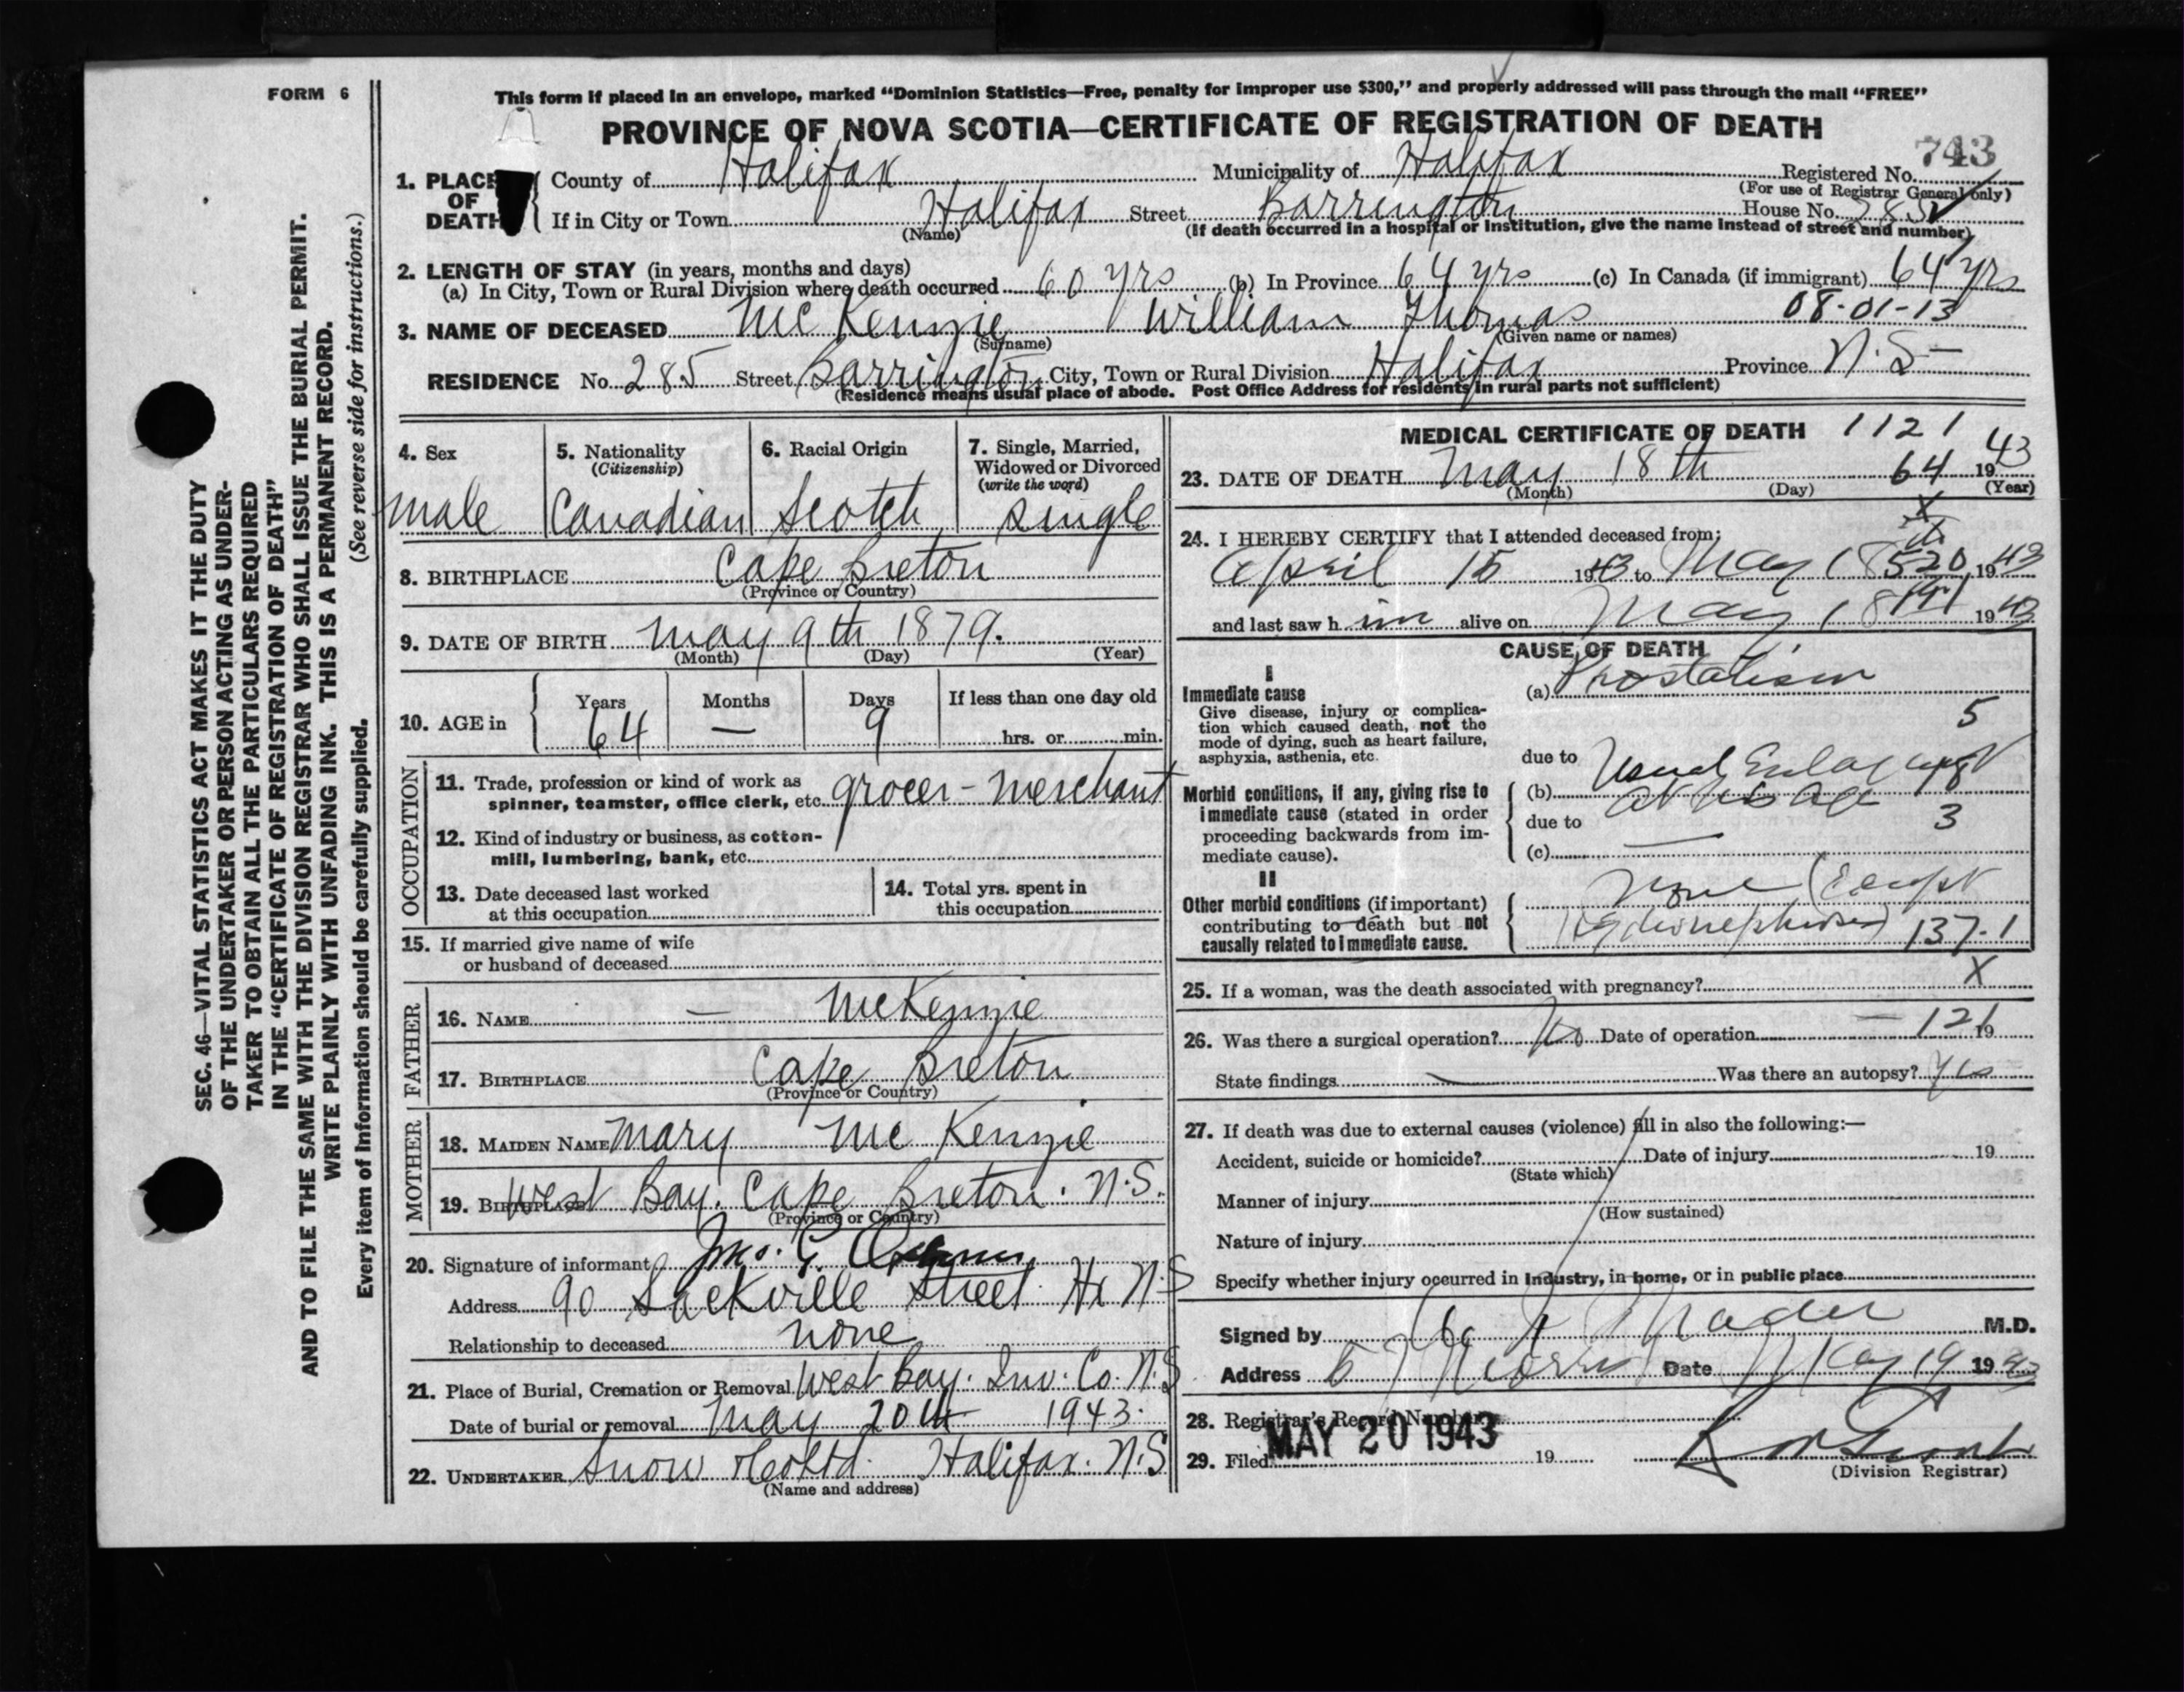 FORM 6
This form if placed in an envelope, marked “Dominion Statistics—Free, penalty for improper use $300,” and properly addressed will pass through the mail “FREE”
PROVINCE OF NOVA SCOTIA—CERTIFICATE OF REGISTRATION OF DEATH
743
1. PLACE OF DEATH
County of Halifax Municipality of Halifax Registered No.
(For use of Registrar General only)
If in City or Town Halifax Street Barrington House No. 285
(Name) (If death occurred in a hospital or institution, give the name instead of street and number)
2. LENGTH OF STAY (in years, months and days)
(a) In City, Town or Rural Division where death occurred 60 yrs (b) In Province 64 yrs (c) In Canada (if immigrant) 64 yrs
08-01-13
3. NAME OF DECEASED McKenzie William Thomas
(Surname) (Given name or names)
RESIDENCE No. 285 Street Barrington City, Town or Rural Division Halifax Province N.S.
(Residence means usual place of abode. Post Office Address for residents in rural parts not sufficient)
4. Sex
male
5. Nationality
(Citizenship)
Canadian
6. Racial Origin
Scotch
7. Single, Married,
Widowed or Divorced
(write the word)
Single
8. BIRTHPLACE Cape Breton
(Province or Country)
9. DATE OF BIRTH May 9th 1879.
(Month) (Day) (Year)
10. AGE in
Years Months Days If less than one day old
64 — 9 hrs. or min.
OCCUPATION
11. Trade, profession or kind of work as
spinner, teamster, office clerk, etc. grocer-merchant
12. Kind of industry or business, as cotton-
mill, lumbering, bank, etc.
13. Date deceased last worked
at this occupation
14. Total yrs. spent in
this occupation
15. If married give name of wife
or husband of deceased
FATHER
16. NAME — McKenzie
17. BIRTHPLACE Cape Breton
(Province or Country)
MOTHER
18. MAIDEN NAME Mary McKenzie
19. BIRTHPLACE West Bay. Cape Breton. N.S.
(Province or Country)
20. Signature of informant
Address 90 Sackville Street. Hx N.S
Relationship to deceased none
21. Place of Burial, Cremation or Removal West Bay. Inv. Co. N.S
Date of burial or removal May 20th 1943.
22. UNDERTAKER Snow & Co Ltd. Halifax. N.S
(Name and address)
MEDICAL CERTIFICATE OF DEATH 1121
23. DATE OF DEATH May 18th 64 1943
(Month) (Day) (Year)
24. I HEREBY CERTIFY that I attended deceased from:
April 15 1943 to May 18 520 1943
and last saw him alive on May 18th 1943
CAUSE OF DEATH
I
Immediate cause
Give disease, injury or complica-
tion which caused death, not the
mode of dying, such as heart failure,
asphyxia, asthenia, etc.
(a) Prostatism
5
due to Usual Enlargement
Morbid conditions, if any, giving rise to
immediate cause (stated in order
proceeding backwards from im-
mediate cause).
(b) at his age
due to 3
(c) —
II
Other morbid conditions (if important)
contributing to death but not
causally related to immediate cause.
None (Except
Hydronephrosis) 137-1
25. If a woman, was the death associated with pregnancy? X
26. Was there a surgical operation? No Date of operation — 121 19
State findings — Was there an autopsy? Yes
27. If death was due to external causes (violence) fill in also the following:—
Accident, suicide or homicide? Date of injury 19
(State which)
Manner of injury
(How sustained)
Nature of injury
Specify whether injury occurred in Industry, in home, or in public place
Signed by Mader M.D.
Address 57 Morris Date May 19 1943
28. Registrar's Record Number
29. Filed MAY 20 1943 19
(Division Registrar)
SEC. 46—VITAL STATISTICS ACT MAKES IT THE DUTY
OF THE UNDERTAKER OR PERSON ACTING AS UNDER-
TAKER TO OBTAIN ALL THE PARTICULARS REQUIRED
IN THE “CERTIFICATE OF REGISTRATION OF DEATH”
AND TO FILE THE SAME WITH THE DIVISION REGISTRAR WHO SHALL ISSUE THE BURIAL PERMIT.
WRITE PLAINLY WITH UNFADING INK. THIS IS A PERMANENT RECORD.
Every item of information should be carefully supplied. (See reverse side for instructions.)